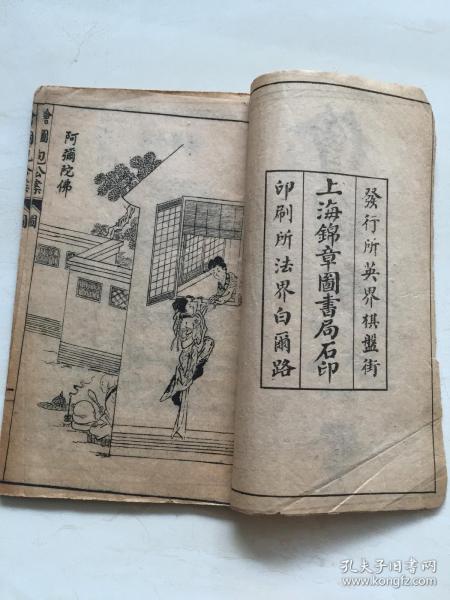 發行所英界棋盤街
上海錦章圖書局石印
印刷所法界白爾路
阿彌陀佛
繪圖包公案
圖
孔夫子旧书网
www.kongfz.com